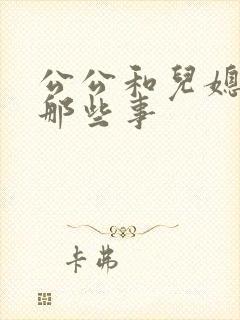 公公和兒媳
那些事
卡弗